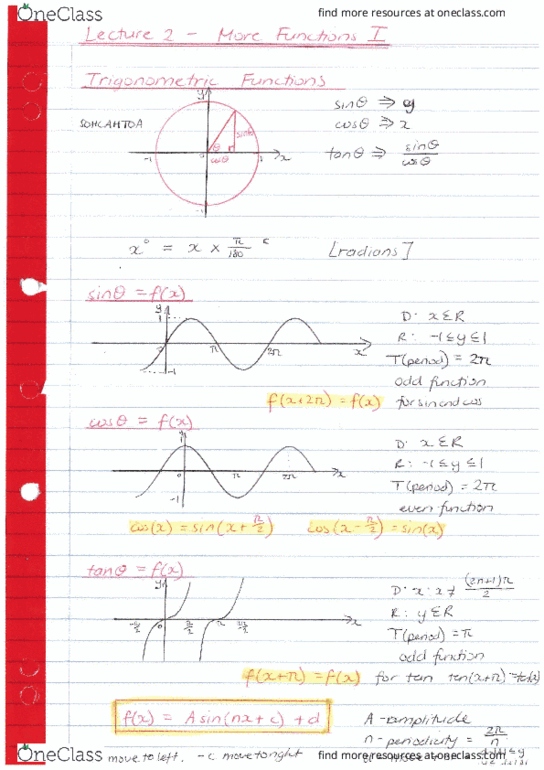 OneClass find more resources at oneclass.com
Lecture 2 - More Functions I
Trigonometric Functions
y
sinθ ⇒ y
SOHCAHTOA
cosθ ⇒ x
sinθ
θ
-1 0 cosθ 1 x
tanθ ⇒ sinθ/cosθ
-1
x° = x × π/180 ᶜ [radians]
sinθ = f(x)
y
1
D: x ΣR
R: -1≤y≤1
π 2π x
T(period) = 2π
-1
odd function
f(x+2π) = f(x) for sin and cos
cosθ = f(x)
y
D: x ΣR
0 π 2π x
R: -1≤y≤1
T(period) = 2π
-1
even function
cos(x) = sin(x+π/2) cos(x-π/2) = sin(x)
tanθ = f(x)
y
D: x: x≠ (2n+1)π/2
R: yΣR
-π/2 0 π/2 π 3π/2 x
T(period) = π
odd function
f(x+π) = f(x) for tan tan(x+π)=tan(x)
f(x) = Asin(nx+c) + d
A - amplitude
n - periodicity = 2π/n
move to left. -c move to right
OneClass find more resources at oneclass.com